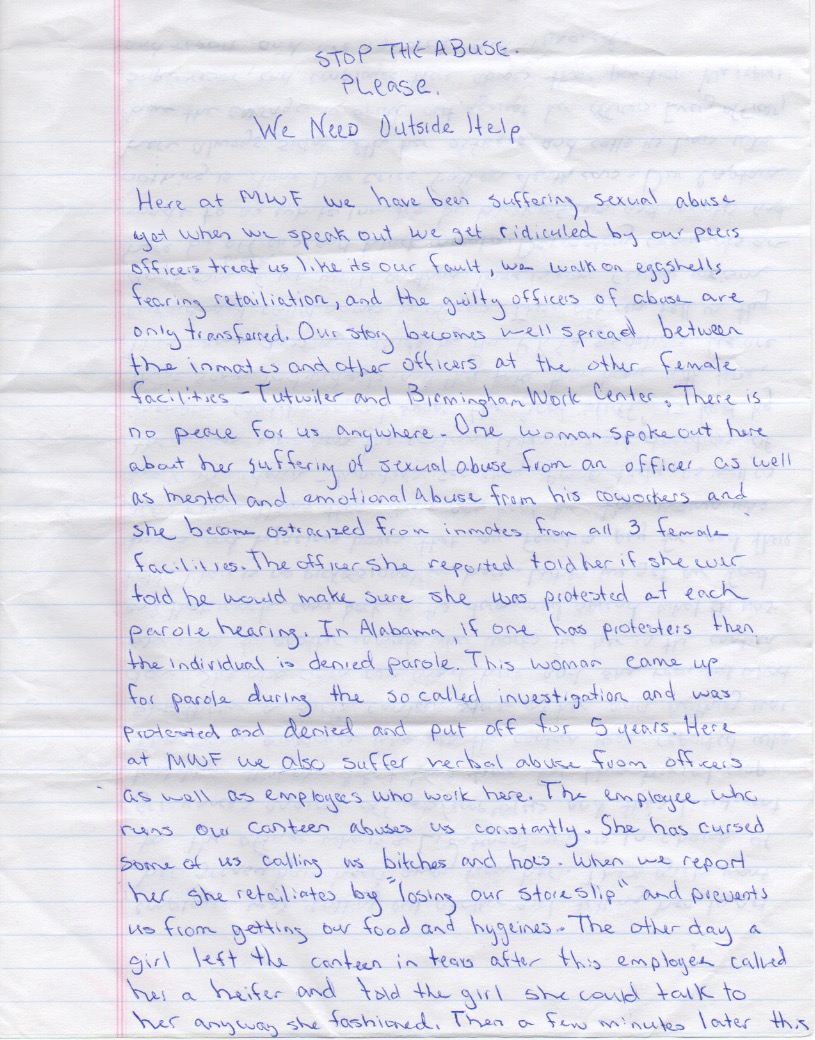 STOP THE ABUSE.
Please.
We Need Outside Help
Here at MWF we have been suffering sexual abuse
yet when we speak out we get ridiculed by our peers
officers treat us like its our fault, we walk on eggshells
fearing retailiation, and the guilty officers of abuse are
only transferred. Our story becomes well spread between
the inmates and other officers at the other female
facilities - Tutwiler and Birmingham Work Center. There is
no peace for us anywhere. One woman spoke out here
about her suffering of sexual abuse from an officer as well
as mental and emotional Abuse from his coworkers and
she became ostracized from inmates from all 3 female
facilities. The officer she reported told her if she ever
told he would make sure she was protested at each
parole hearing. In Alabama, if one has protesters then
the individual is denied parole. This woman came up
for parole during the so called investigation and was
protested and denied and put off for 5 years. Here
at MWF we also suffer verbal abuse from officers
as well as employees who work here. The employee who
runs our canteen abuses us constantly. She has cursed
some of us calling us bitches and hoes. When we report
her she retailiates by "losing our store slip" and prevents
us from getting our food and hygeines. The other day a
girl left the canteen in tears after this employee called
her a heifer and told the girl she could talk to
her anyway she fashioned. Then a few minutes later this